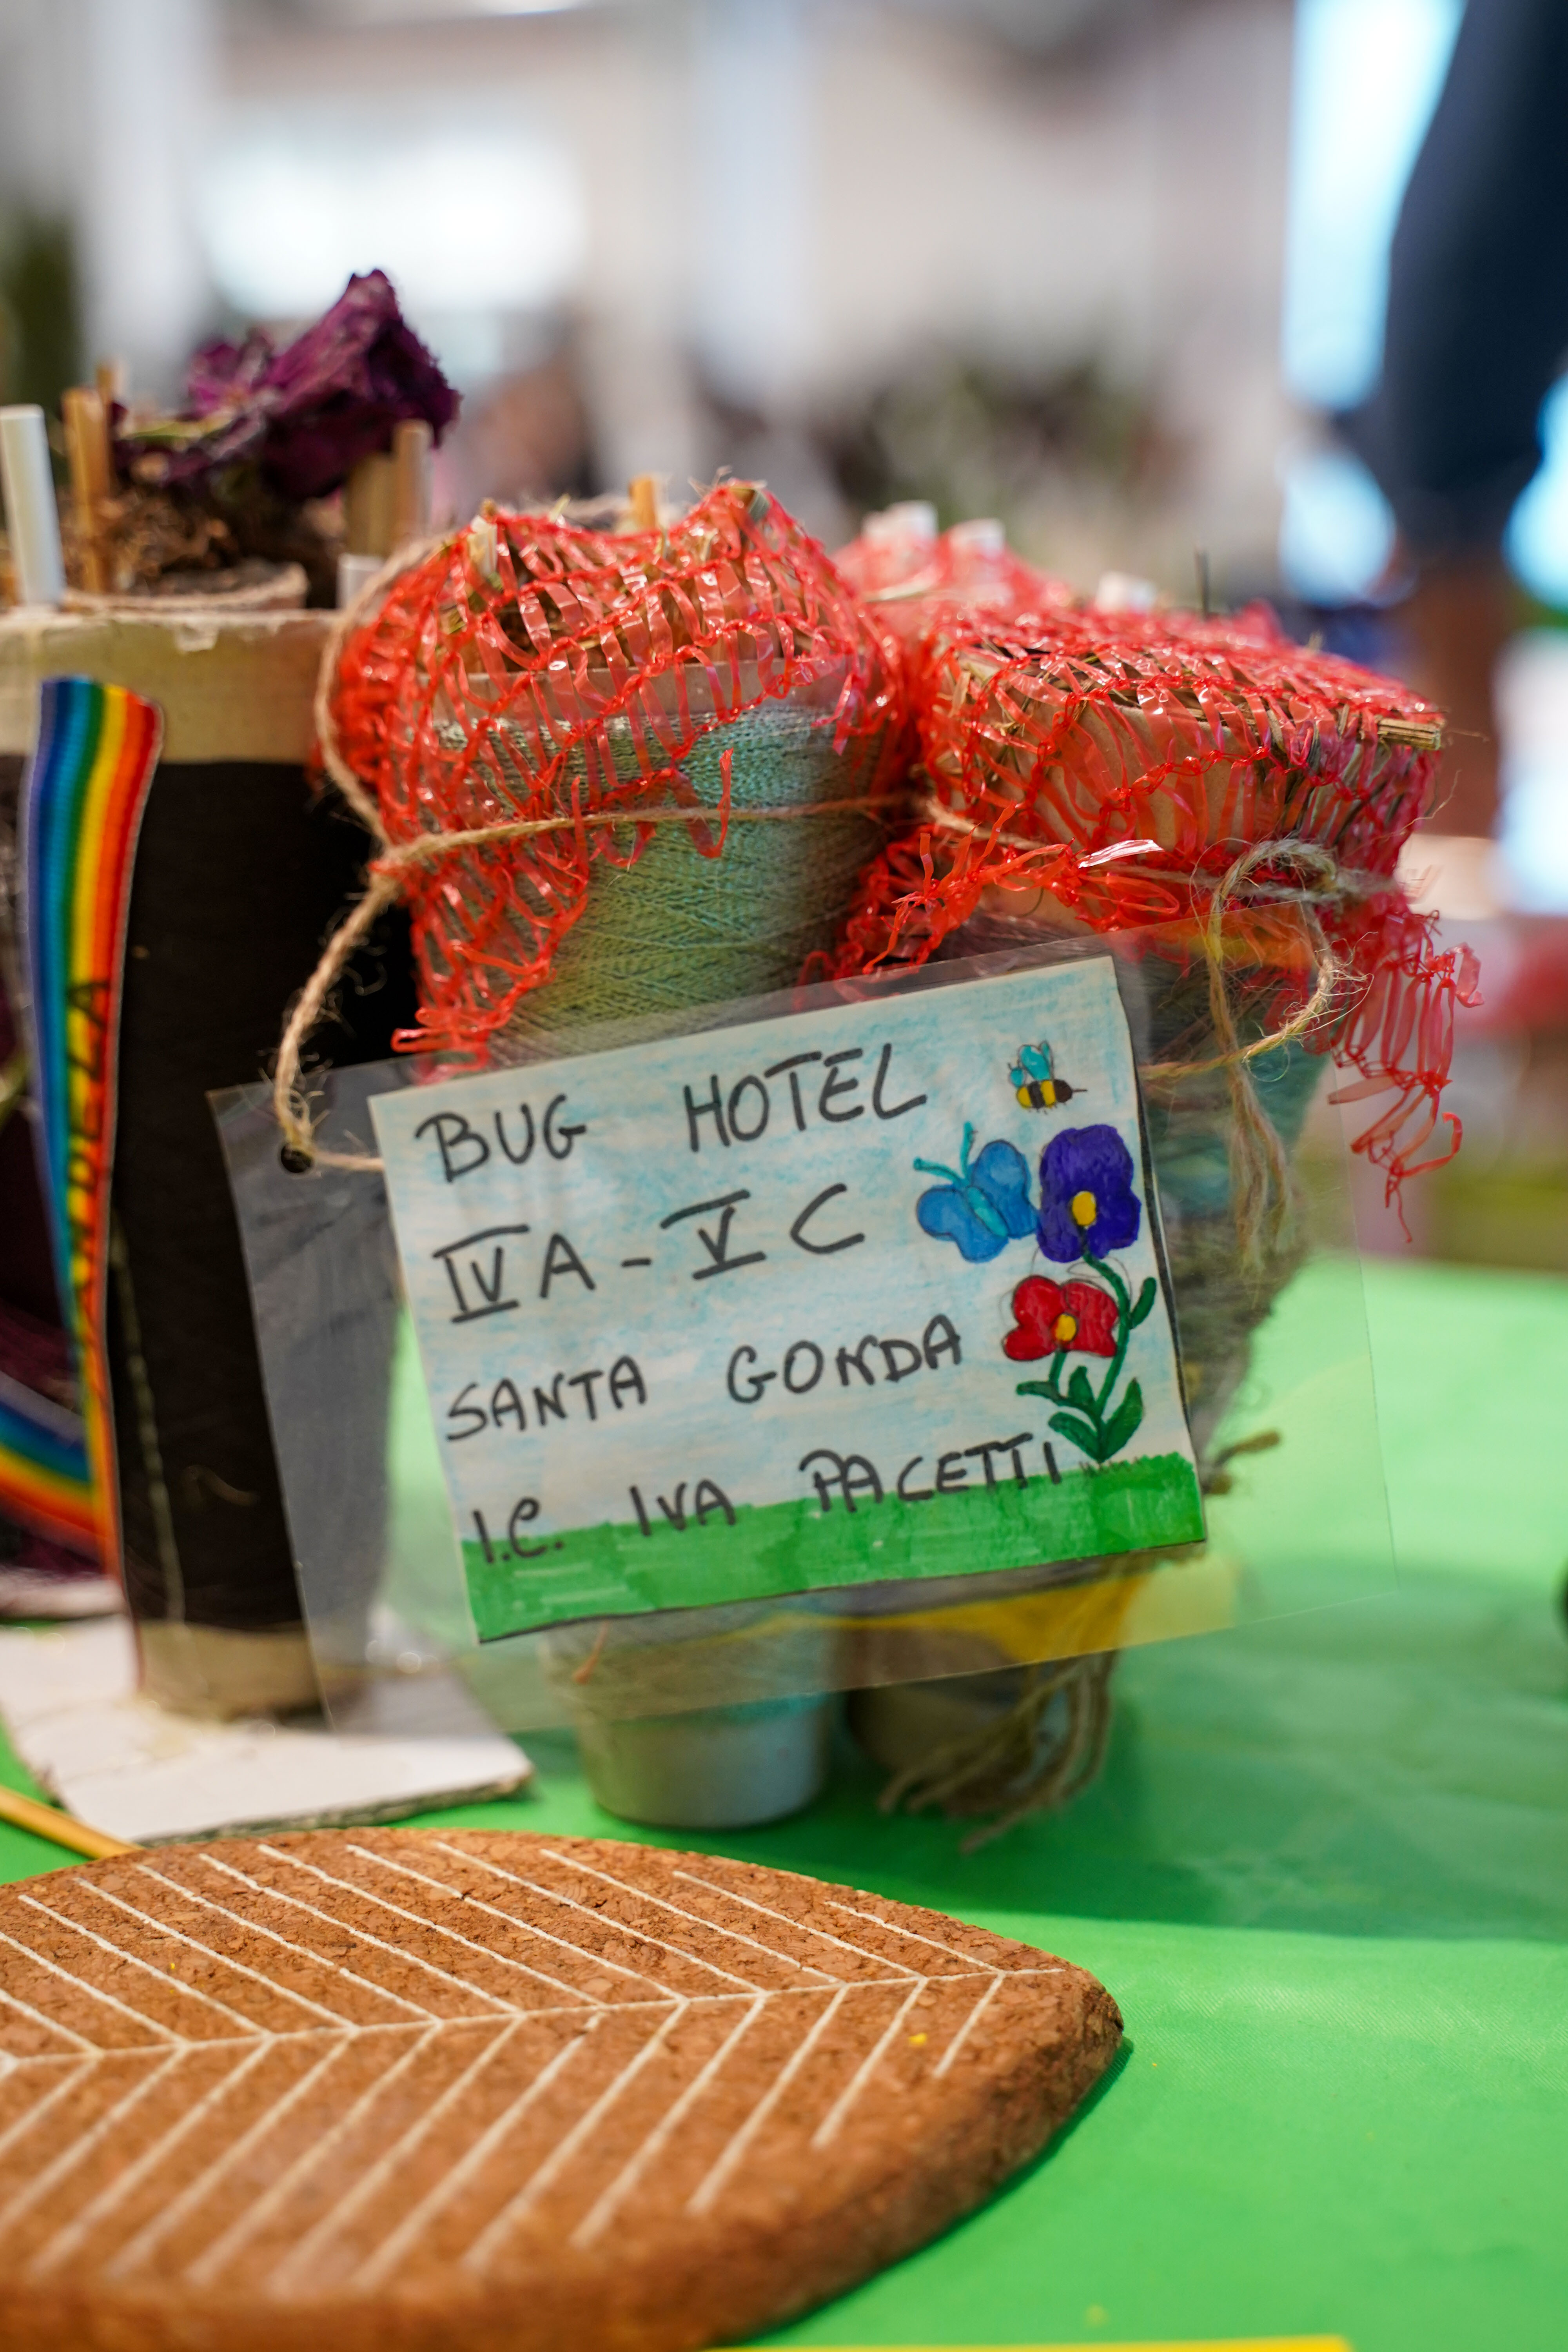 BUG HOTEL
IVA - VC
SANTA GONDA
I.C. IVA PACETTI